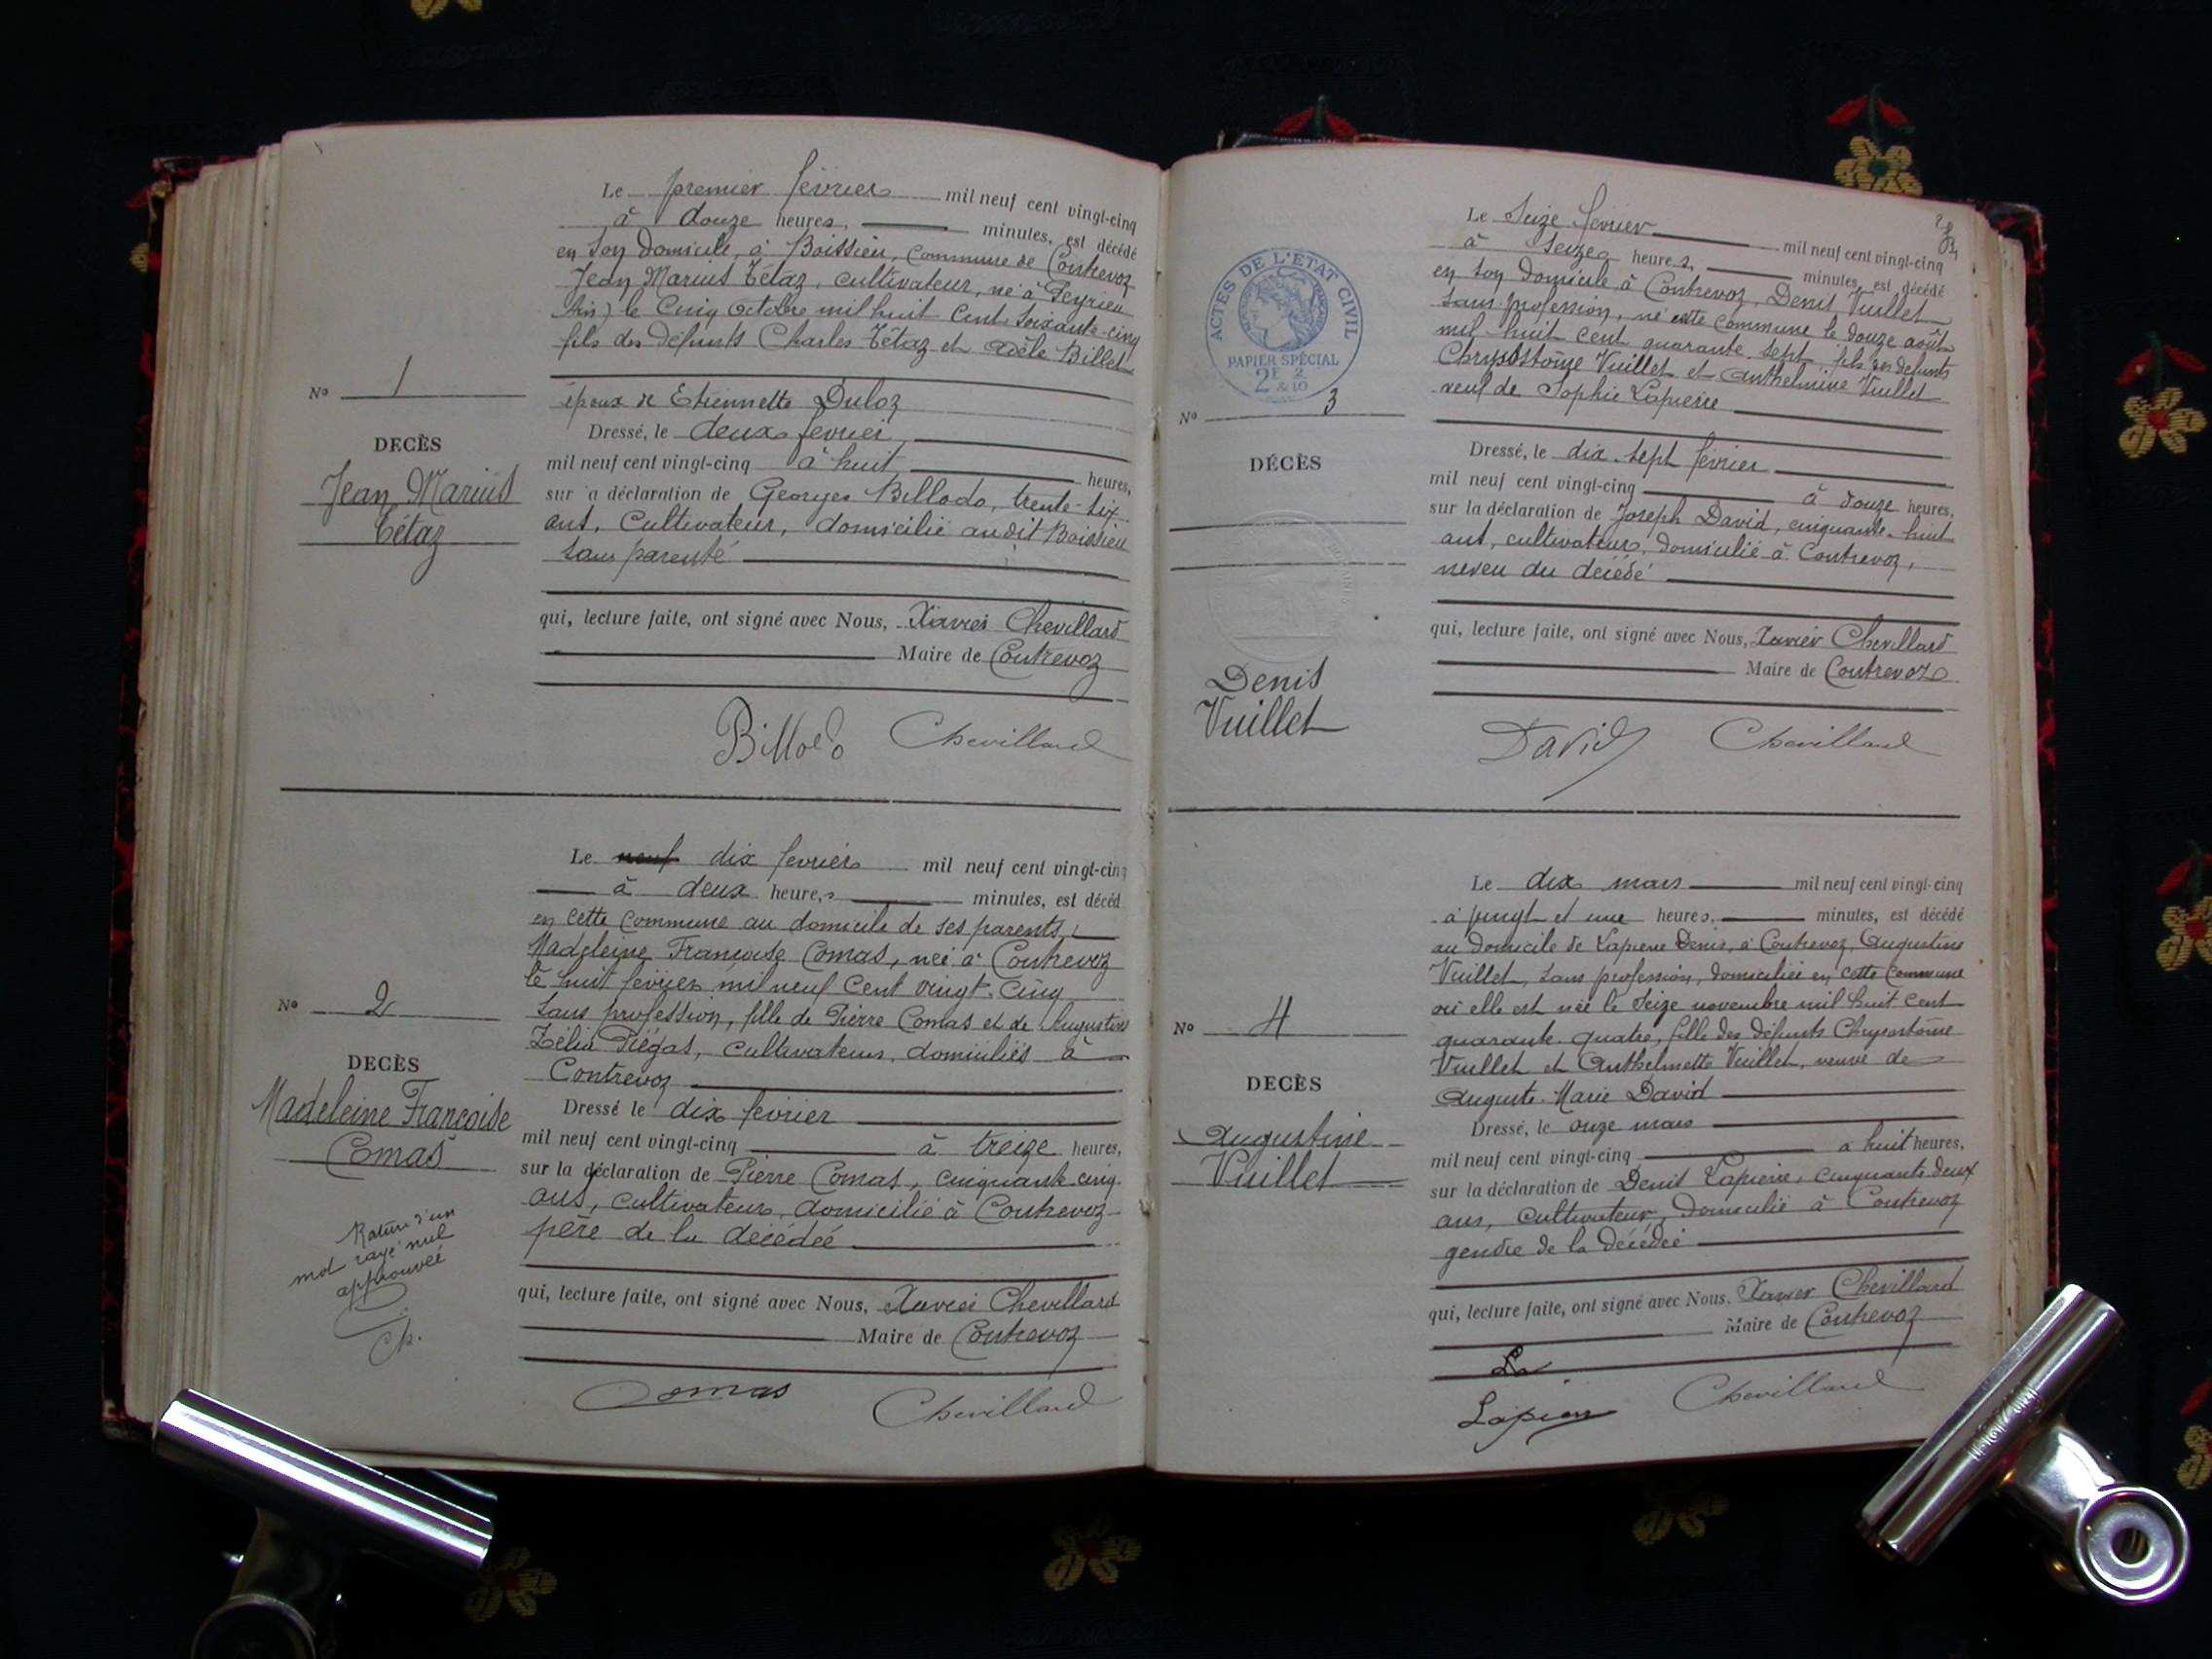 Le premier février mil neuf cent vingt-cinq
à douze heures, minutes, est décédé
en son domicile, à Boissieu, commune de Contrevoz
Jean Marius Tétaz, cultivateur, né à Peyrieu
Ain) le cinq octobre mil huit cent soixante-cinq
fils des défunts Charles Tétaz et Adèle Billet
époux de Etiennette Duloz
Dressé, le deux février,
mil neuf cent vingt-cinq à huit heures,
sur a déclaration de Georges Billodo, trente-six
ans, cultivateur, domicilié audit Boissieu
sans parenté
qui, lecture faite, ont signé avec Nous, Xavier Chevillard
Maire de Contrevoz
Chevillard
No 1
DECÈS
Jean Marius
Tétaz
Le neuf dix février mil neuf cent vingt-cinq
à deux heures, minutes, est décéd
en cette commune au domicile de ses parents,
Madeleine Françoise Comas, née à Contrevoz
le huit février mil neuf cent vingt-cinq
sans profession, fille de Pierre Comas et de Augustine
Zélia Piégas, cultivateurs, domiciliés à
Contrevoz
Dressé le dix février
mil neuf cent vingt-cinq à treize heures,
sur la déclaration de Pierre Comas, cinquante-cinq
ans, cultivateur, domicilié à Contrevoz
père de la décédée
qui, lecture faite, ont signé avec Nous, Xavier Chevillard
Maire de Contrevoz
Comas Chevillard
No 2
DECÈS
Madeleine Françoise
Comas
Rature d'un
mot rayé nul
approuvée
Ch.
Le seize février mil neuf cent vingt-cinq
à seize heures, minutes, est décédé
en son domicile, à Contrevoz, Denis Vuillet
sans profession, né cette commune le douze août
mil huit cent quarante sept, fils des défunts
Chrysostôme Vuillet et Anthelmine Vuillet
veuf de Sophie Lapierre
Dressé, le dix-sept février
mil neuf cent vingt-cinq à douze heures,
sur la déclaration de Joseph David, cinquante-huit
ans, cultivateur, domicilié à Contrevoz,
neveu du décédé
qui, lecture faite, ont signé avec Nous, Xavier Chevillard
Maire de Contrevoz
David Chevillard
ACTES DE L'ÉTAT CIVIL
PAPIER SPÉCIAL
No 3
DÉCÈS
Denis
Vuillet
Le dix mars mil neuf cent vingt-cinq
à vingt et une heures, minutes, est décédé
au domicile de Lapierre Denis, à Contrevoz, Augustine
Vuillet, sans profession, domiciliée en cette commune
où elle est née le seize novembre mil huit cent
quarante-quatre, fille des défunts Chrysostôme
Vuillet et Anthelmette Vuillet, veuve de
Auguste Marie David
Dressé, le onze mars
mil neuf cent vingt-cinq à huit heures,
sur la déclaration de Denis Lapierre, cinquante-deux
ans, cultivateur, domicilié à Contrevoz
gendre de la décédée
qui, lecture faite, ont signé avec Nous, Xavier Chevillard
Maire de Contrevoz
La
Chevillard
No 4
DECÈS
Augustine
Vuillet